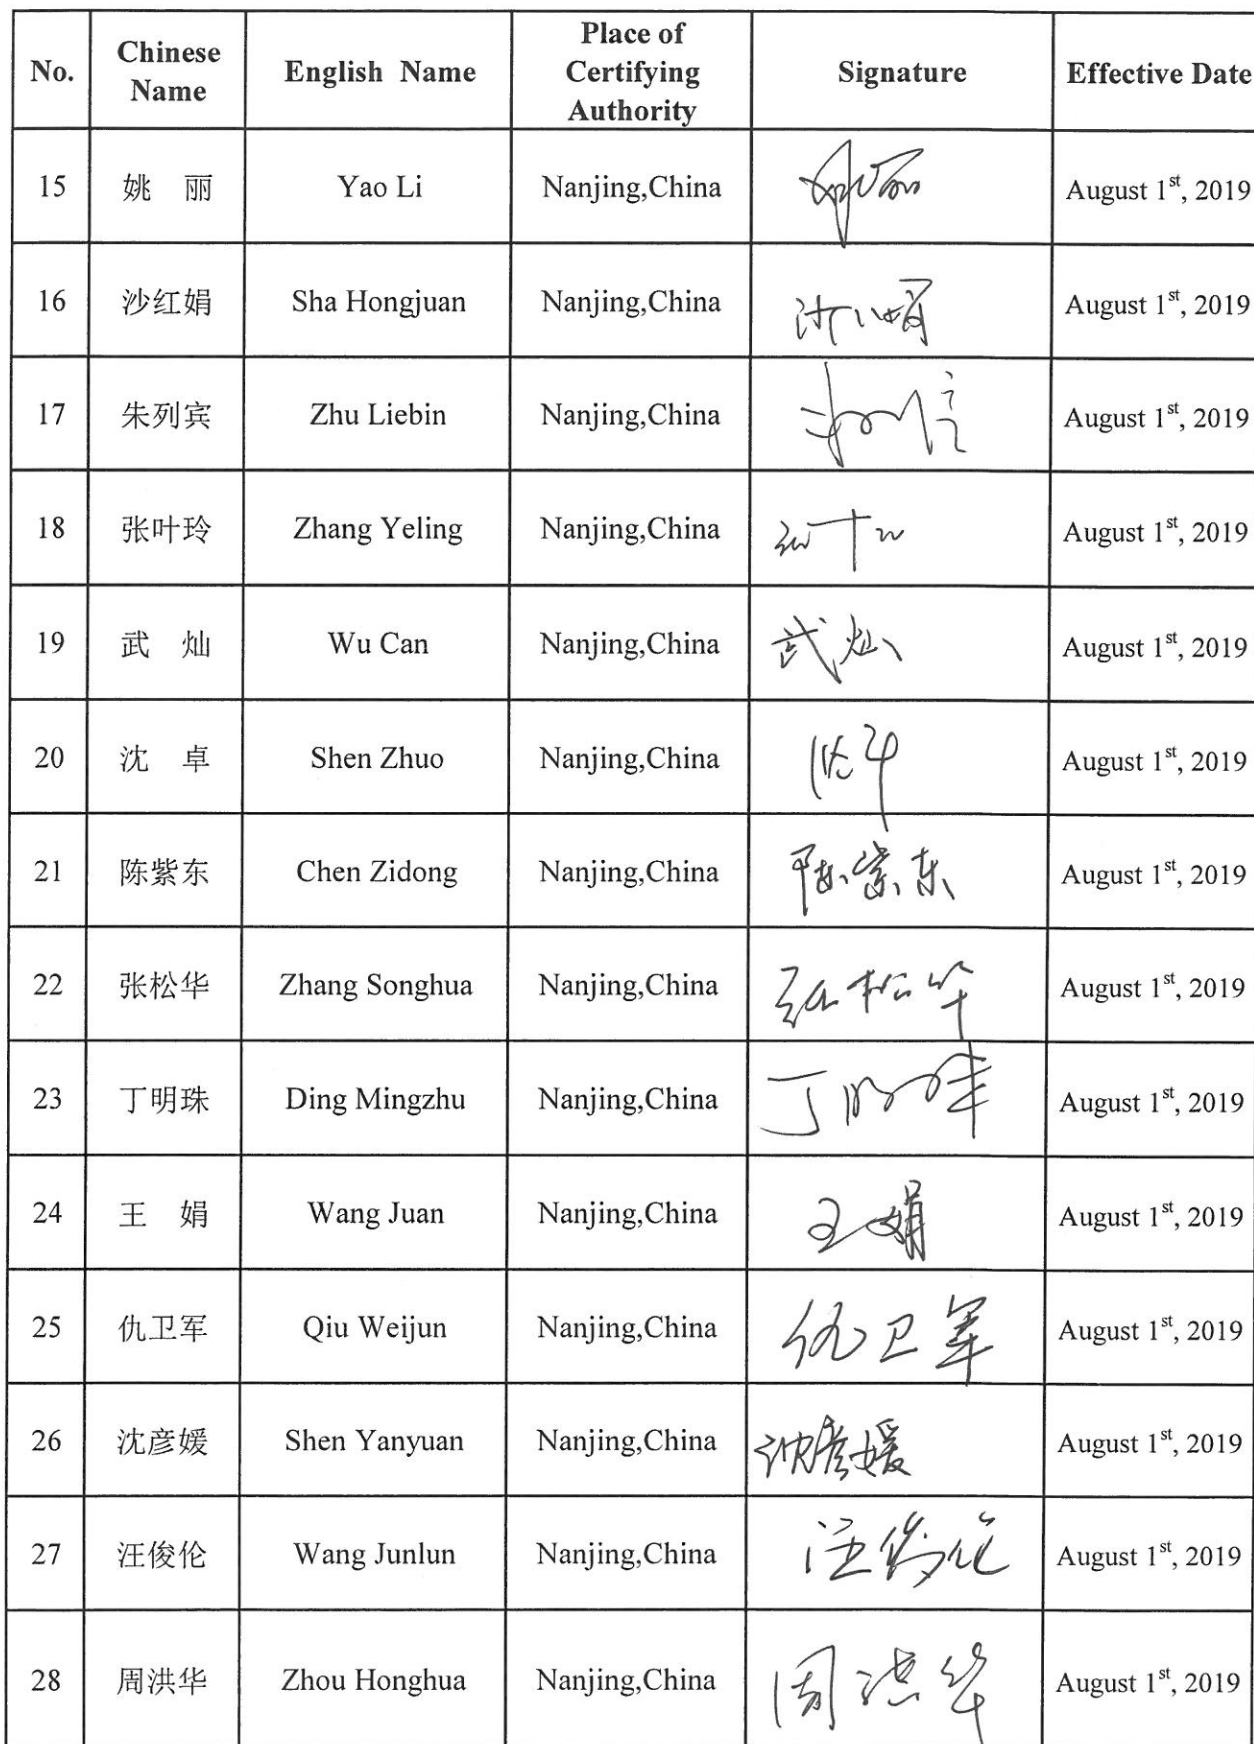 No. Chinese Name English Name Place of Certifying Authority Signature Effective Date
15 姚 丽 Yao Li Nanjing,China 姚丽 August 1st, 2019
16 沙红娟 Sha Hongjuan Nanjing,China 沙红娟 August 1st, 2019
17 朱列宾 Zhu Liebin Nanjing,China August 1st, 2019
18 张叶玲 Zhang Yeling Nanjing,China 张叶玲 August 1st, 2019
19 武 灿 Wu Can Nanjing,China 武灿 August 1st, 2019
20 沈 卓 Shen Zhuo Nanjing,China 沈卓 August 1st, 2019
21 陈紫东 Chen Zidong Nanjing,China 陈紫东 August 1st, 2019
22 张松华 Zhang Songhua Nanjing,China 张松华 August 1st, 2019
23 丁明珠 Ding Mingzhu Nanjing,China 丁明珠 August 1st, 2019
24 王 娟 Wang Juan Nanjing,China 王娟 August 1st, 2019
25 仇卫军 Qiu Weijun Nanjing,China 仇卫军 August 1st, 2019
26 沈彦媛 Shen Yanyuan Nanjing,China 沈彦媛 August 1st, 2019
27 汪俊伦 Wang Junlun Nanjing,China 汪俊伦 August 1st, 2019
28 周洪华 Zhou Honghua Nanjing,China 周洪华 August 1st, 2019